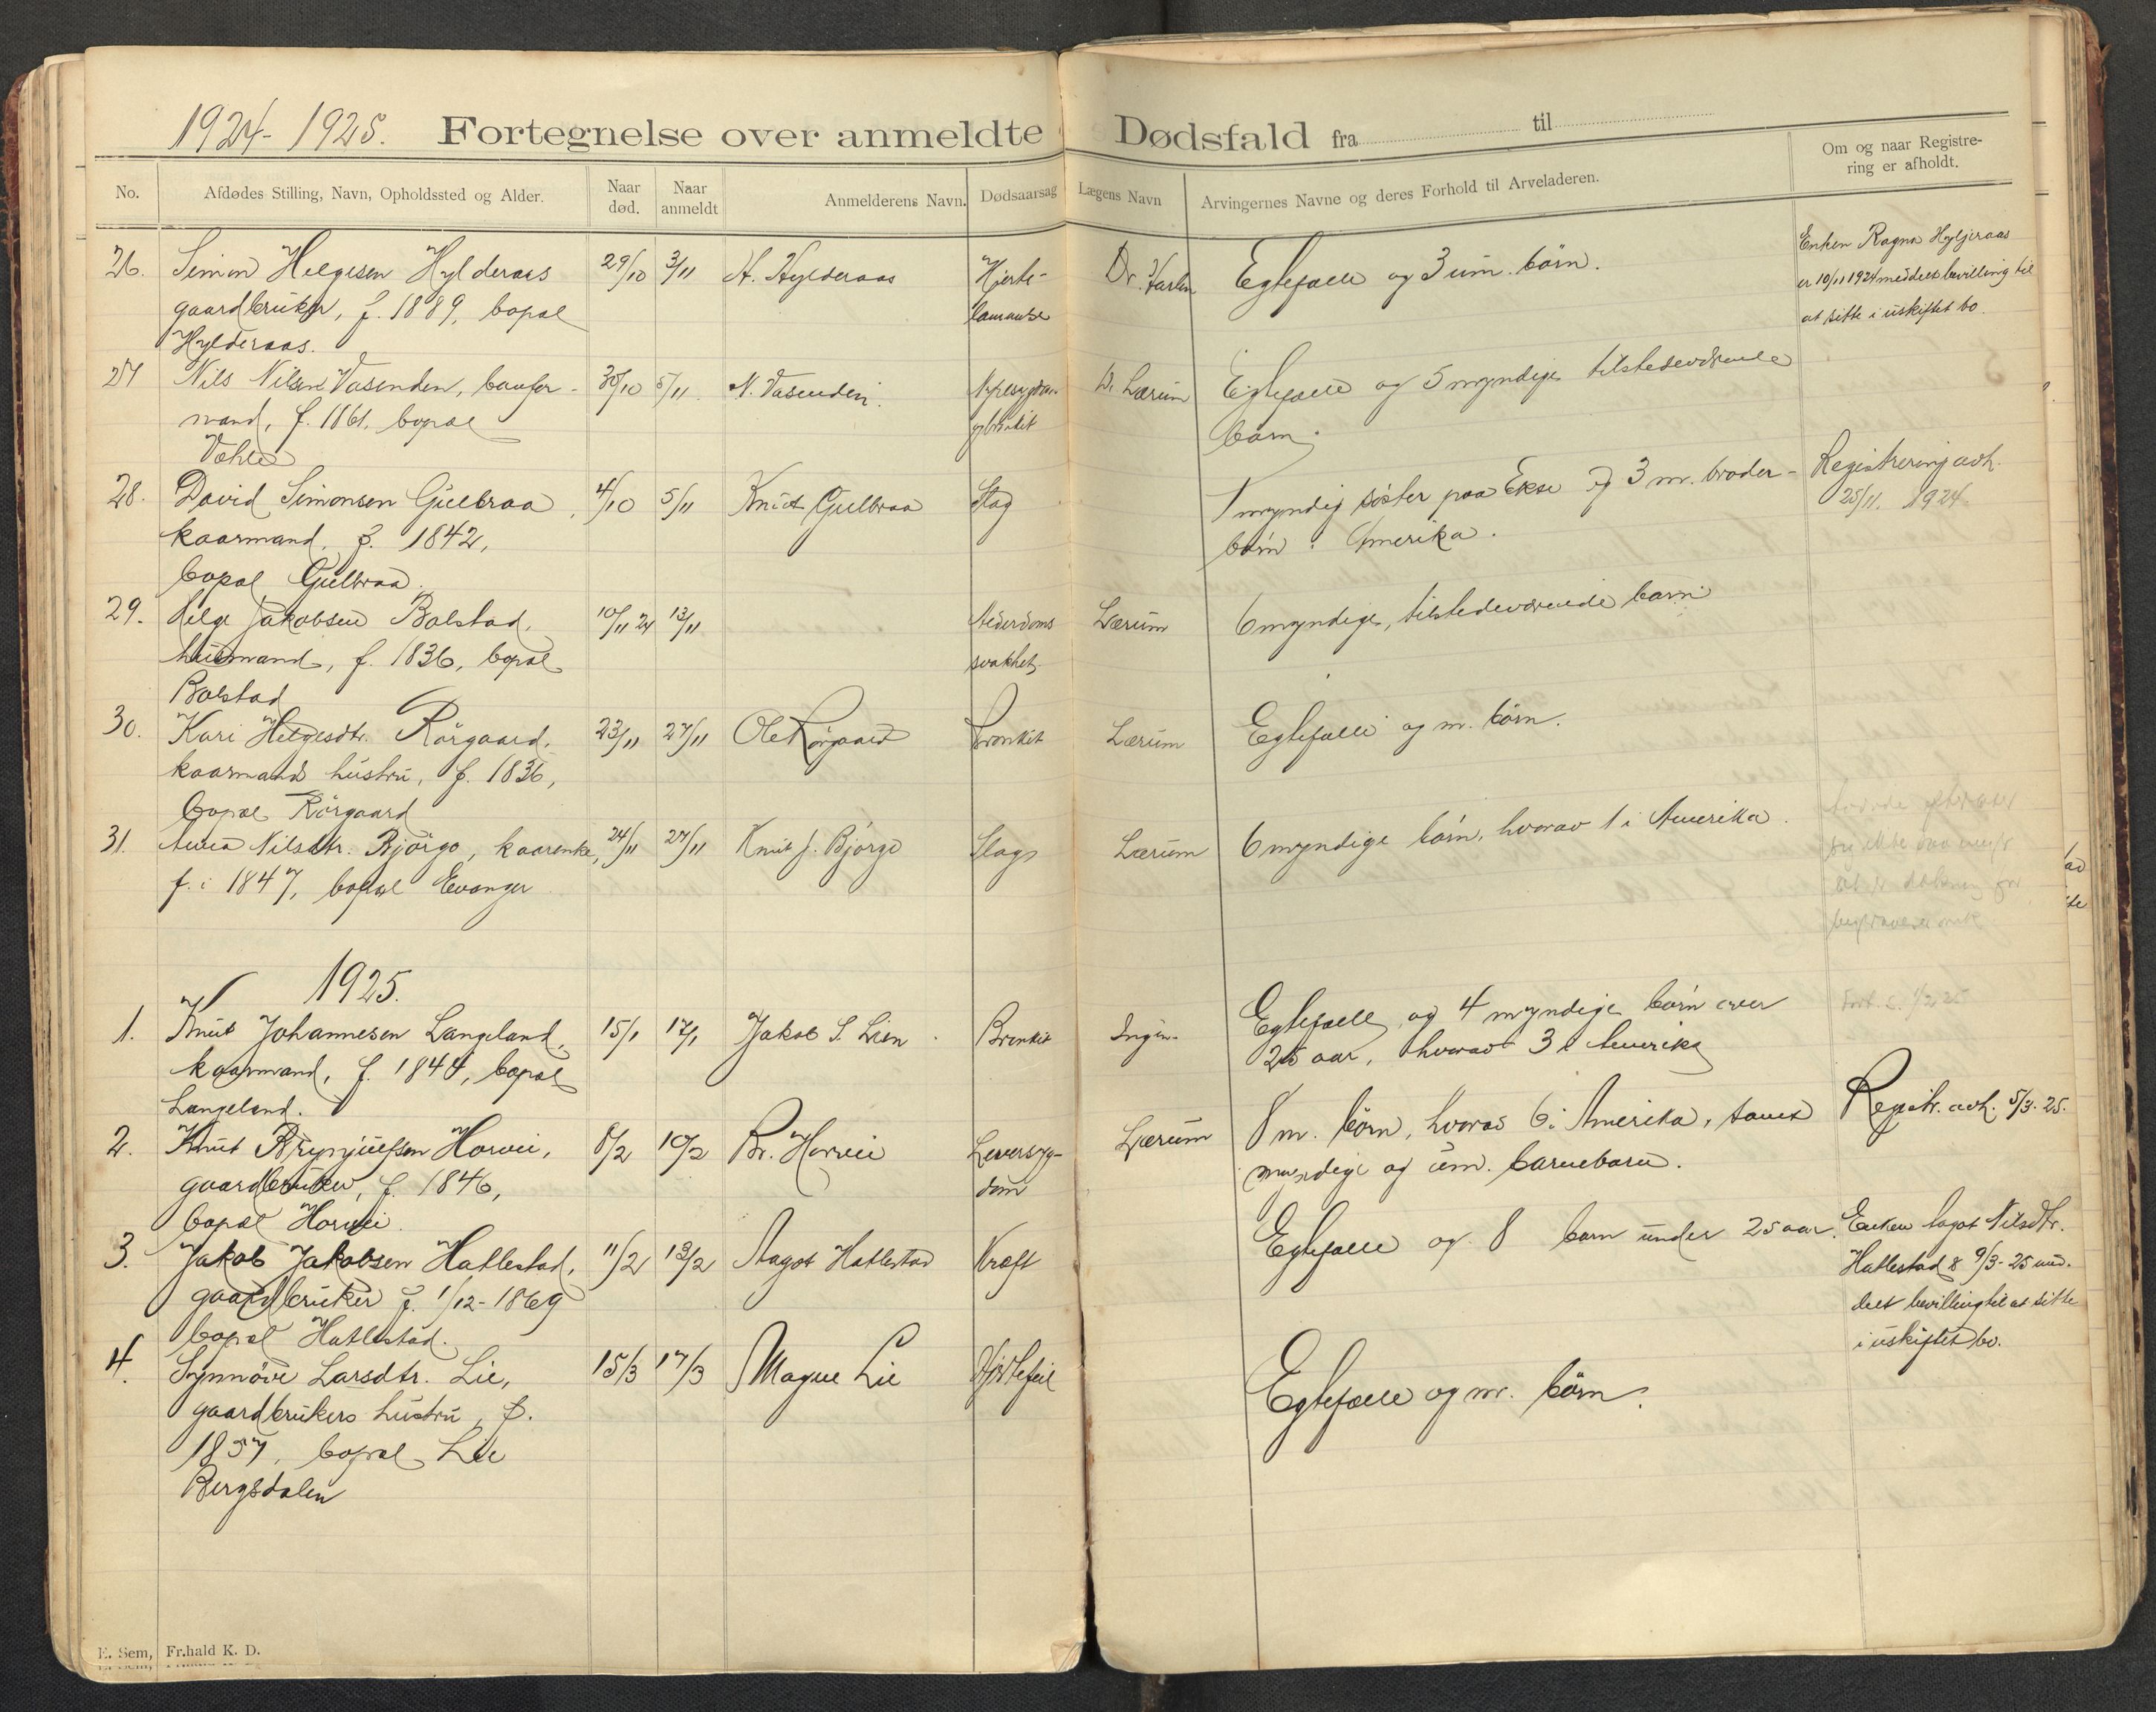 1924-1925. Fortegnelse over anmeldte Dødsfald fra til
No.
Afdødes Stilling, Navn, Opholdssted og Alder.
Naar død.
Naar anmeldt
Anmelderens Navn.
Dødsaarsag
Lægens Navn
Arvingernes Navne og deres Forhold til Arveladeren.
Om og naar Registre-
ring er afholdt.
26. Simon Helgesen Hylderaas 29/10 3/11 H. Hylderaas Hjerte- Dr. Egtefælle og 3 um. børn. Enken Ragna
gaardbruker, f. 1889, bopæl lammelse er 10/11 1924 meddelt bevilling til
Hylderaas. at sitte i uskiftet bo.
27 Nils Nilsen Vasenden, baufor- 30/10 5/11 N. Vasenden. Dr. Lærum Egtefælle og 5 myndige tilstedeværende
mand, f. 1861, bopæl børn.
28. David Simonsen Gullbraa, 4/10 5/11 Knut Gullbraa Slag 1 myndig søster paa Ekse og 3 m. broder- Registrering avh.
kaarmand, f. 1842, børn i Amerika. 25/11. 1924
bopæl Gullbraa.
29. Helge Jakobsen Bolstad, 10/11 24 13/11 Alderdoms Lærum 6 myndige, tilstedeværende barn
husmand, f. 1836, bopæl svakhet.
Bolstad
30. Kari Helgesdtr. Rørgaard, 23/11 27/11 Ole Rørgaard Bronkit Lærum Egtefælle og m. børn.
kaarmands hustru, f. 1836,
bopæl Rørgaard
31. Anna Nilsdtr. Bjørgo, kaarenke, 24/11 27/11 Knut J. Bjørgo Slag Lærum 6 myndige børn, hvorav 1 i Amerika.
f. i 1847, bopæl Evanger
1925.
1. Knut Johannesen Langeland, 15/1 17/1 Jakob S. Lien Bronkit Ingen Egtefælle og 4 myndige børn over
kaarmand, f. 1844, bopæl 25 aar, hvorav 3 i Amerika
Langeland.
2. Knut Brynjulfsen Horvei, 8/2 10/2 Br. Horvei Leversyg- Lærum 8 m. børn, hvorav 6 i Amerika, samt Registr. avh. 5/3. 25.
gaardbruker, f. 1846, dom myndige og um. barnebarn.
bopæl Horvei.
3. Jakob Jakobsen Hatlestad, 11/2 13/2 Aagot Hatlestad Kræft Egtefælle og 8 barn under 25 aar. Enken Aagot Nilsdtr.
gaardbruker f. 1/12-1869 Hatlestad 9/3-25 med-
bopæl Hatlestad. delt bevilling til at sitte
i uskiftet bo.
4. Synnøve Larsdtr. Lie, 15/3 17/3 Magne Lie Hjertefeil Egtefælle og m. børn.
gaardbrukers hustru, f.
1857, bopæl Lie
Bergsdalen
E. Sem, Fr.hald K. D.